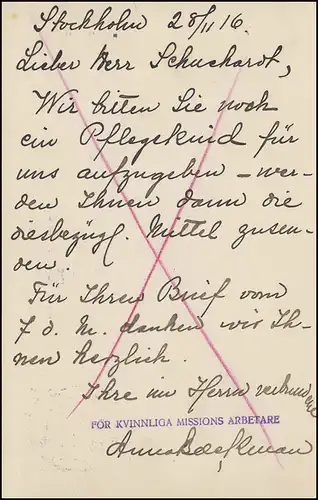 Stockholm 28/II 16.
Lieber Herr Schuchardt,
Wir bitten Sie noch
ein Pflegekind für
uns aufzugeben – wer-
den Ihnen dann die
diesbezügl. Mittel zusen-
den.
Für Ihren Brief vom
7 d. M. danken wir Ih-
nen herzlich.
Ihre im Herrn verbundene
FÖR KVINNLIGA MISSIONS ARBETARE
Anna